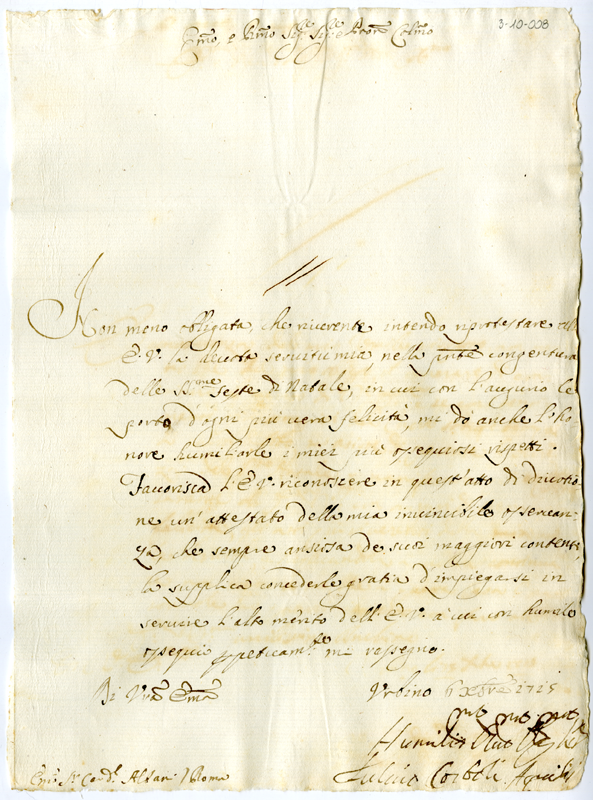 3-10-008
Emo, e Rmo Sig.re Sig.re e Pron Colmo
Non meno obligata, che riverente intendo riprotestare all'
E.V. la divota servitù mia, nella pnte congentura
delle SS.me feste di Natale, in cui con l'augurio le
porto d'ogni più vera felicità, mi dò anche l'ho-
nore humiliarle i miei più ossequiosi rispetti.
Favorisca l'E.V. riconoscere in quest'atto di divotio-
ne un'attestato della mia invincibile osservan-
za, che sempre ansiosa de suoi maggiori contenti
la supplica concederle gratia d'impiegarsi in
servire l'alto merito dell'E.V. a cui con humile
ossequio mi rassegno.
Di Vra Ema Urbino 1715
Humilis
Corboli
Emo Sr Cardl Albani / Roma